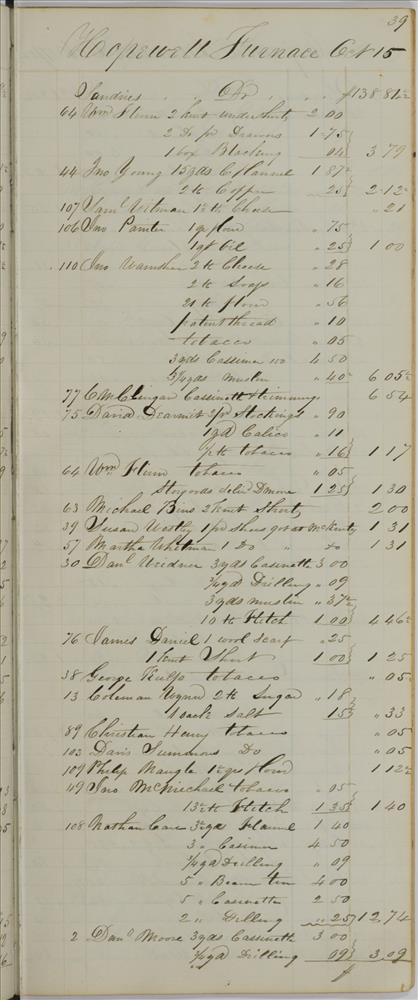 39
Hopewell Furnace Oct 15
Sundries Dr 138 81½
64 Wm Flinn 2 knit undershirts 2 00
2 Do pr Drawers 1 75
1 box Blacking 04 3 79
44 Jno Young 15 yds C Flannel 1 87½
2 lb Coffee 25 2 12½
107 Saml 1½ lb Cheese " 21
106 Jno Painter 1 qr flour " 75
1 qt Oil " 25 1 00
110 Jno 2 lb Cheese " 28
2 lb Soap " 16
21 lb flour " 56
patent thread " 10
tobacco " 05
3 yds Cassimer 150 4 50
yds muslin " 40 6 05½
77 C M Clingan Cassinett & trimmings 6 54
75 David Dearmit 3 pr Stockings " 90
1 yd Calico " 11
lb tobacco " 16 1 17
64 Wm Flinn tobacco " 05
1 25 1 30
63 Michael 2 knit Shirts 2 00
39 Susan 1 pr shoes got at McKenty 1 31
57 Martha Whitman 1 Do " do 1 31
30 Danl Weidner 3 yds Cassinett 3 00
yd Drilling " 09
3 yds muslin " 37½
10 lb Flitch 1 00 4 46½
76 James Daniel 1 wool scarf " 25
1 knit Shirt 1 00 1 25
38 George tobacco " 05
13 Coleman 2 lb Sugar " 18
1 sack salt 15 " 33
89 Christian Henry tobacco " 05
103 Davis Simmons Do " 05
109 Philip 1½ qrs flour 1 12½
49 Jno McMichael tobacco " 05
13½ lb Flitch 1 35 1 40
108 Nathan Care 3½ yds Flannel 1 40
3 " Casimer 4 50
yd Drilling " 09
5 " 4 00
5 " Cassinett 2 50
2 " Drilling " 25 12,74
2 Danl Moore 3 yds Cassinett 3 00
yd Drilling 09 3,09